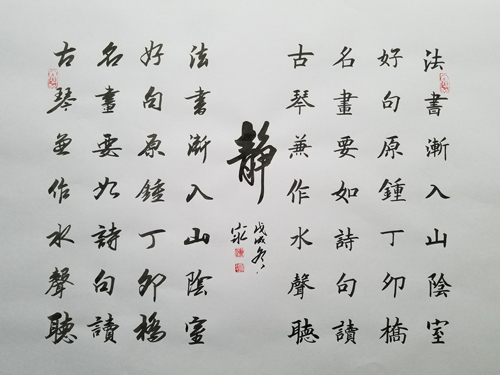 法書漸入山陰室
好句原鍾丁卯橋
名畫要如詩句讀
古琴兼作水聲聽
靜
戊戌冬
法書漸入山陰室
好句原鍾丁卯橋
名畫要如詩句讀
古琴兼作水聲聽